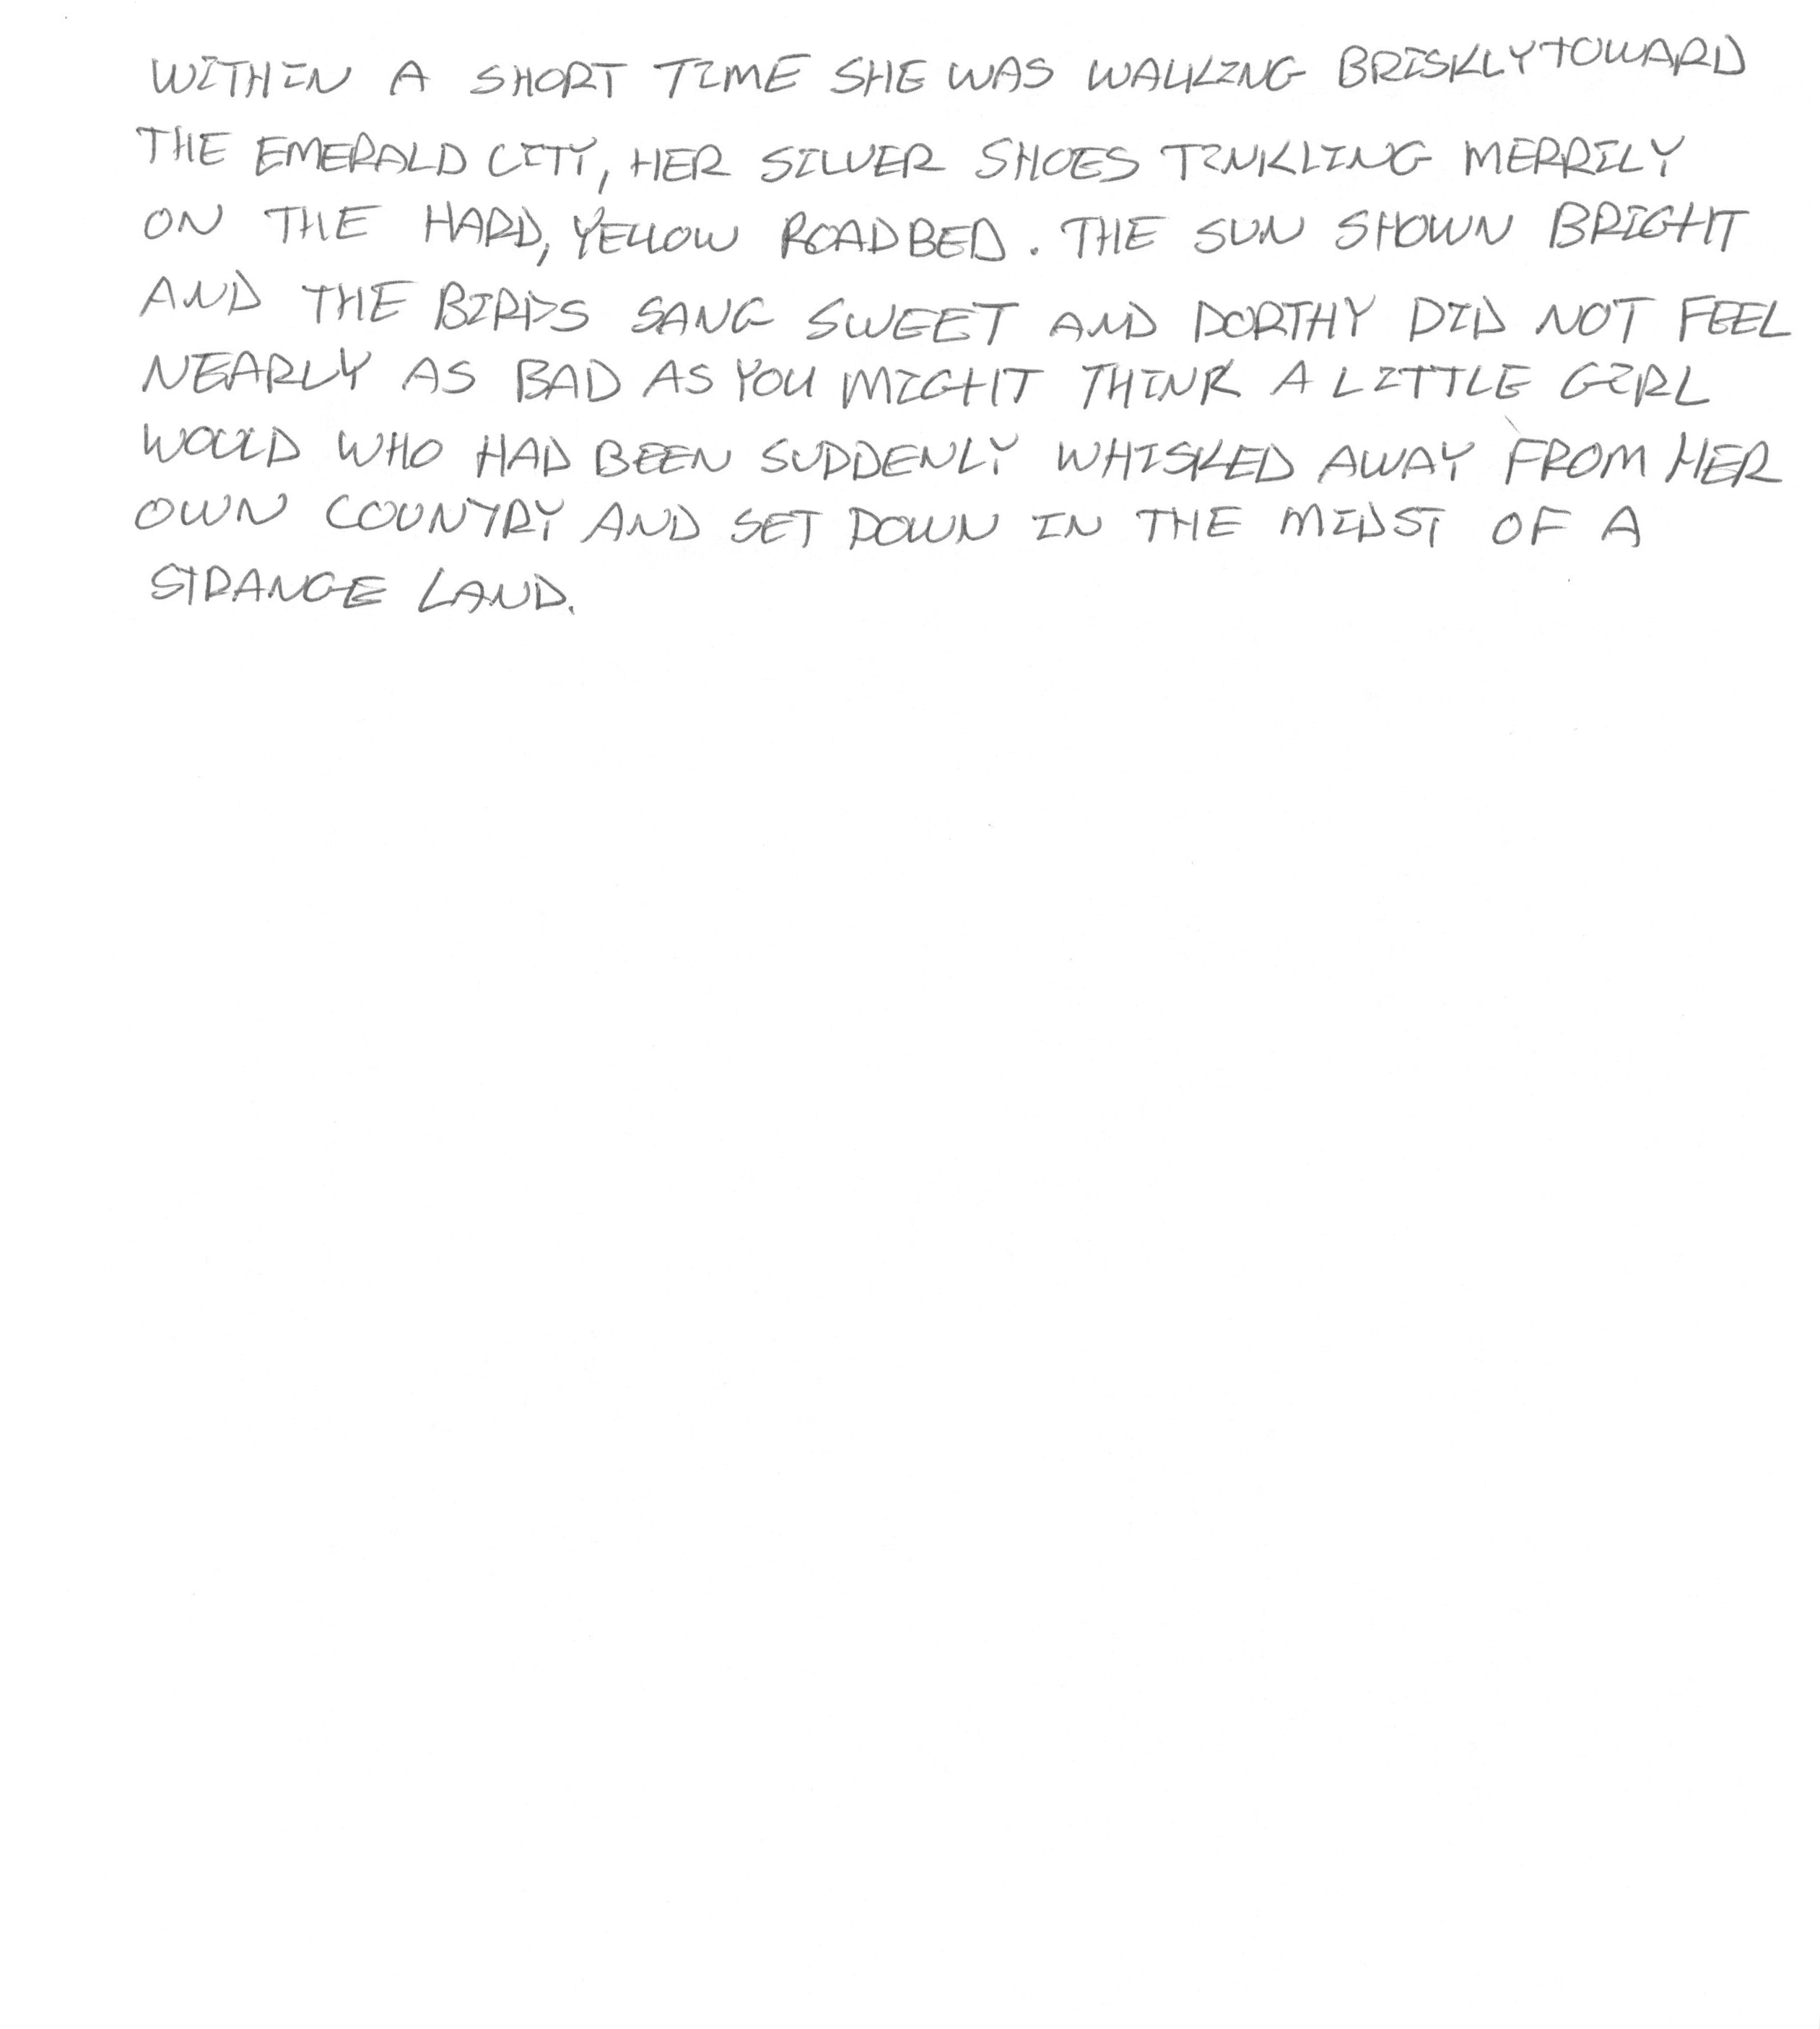 WITHIN A SHORT TIME SHE WAS WALKING BRISKLY TOWARD
THE EMERALD CITY, HER SILVER SHOES TINKLING MERRILY
ON THE HARD, YELLOW ROADBED. THE SUN SHOWN BRIGHT
AND THE BIRDS SANG SWEET AND DORTHY DID NOT FEEL
NEARLY AS BAD AS YOU MIGHT THINK A LITTLE GIRL
WOULD WHO HAD BEEN SUDDENLY WHISKED AWAY FROM HER
OWN COUNTRY AND SET DOWN IN THE MIDST OF A
STRANGE LAND.